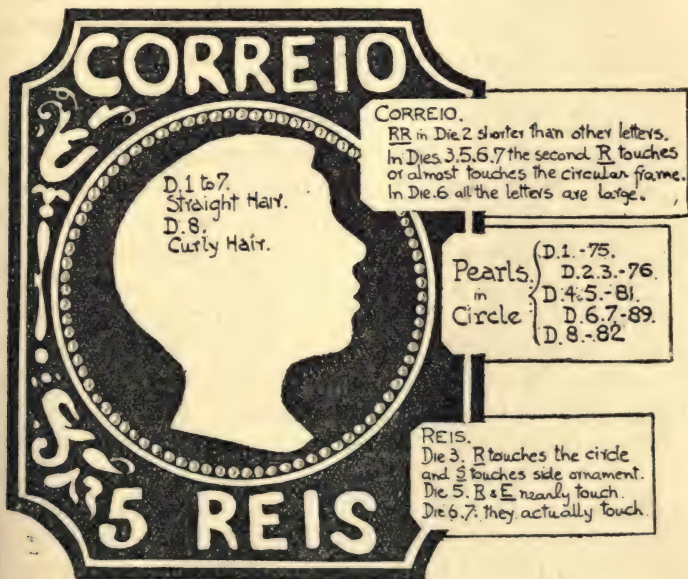 CORREIO
D.1 to 7.
Straight Hair.
D.8.
Curly Hair.
CORREIO.
RR in Die 2 shorter than other letters.
In Dies 3.5.6.7 the second R touches
or almost touches the circular frame.
In Die 6 all the letters are large.
Pearls in Circle
D.1.-75.
D.2.3.-76.
D.4.5.-81.
D.6.7.-89.
D.8.-82
REIS.
Die 3. R touches the circle
and S touches side ornament.
Die 5. R & E nearly touch.
Die 6.7. they actually touch.
5 REIS